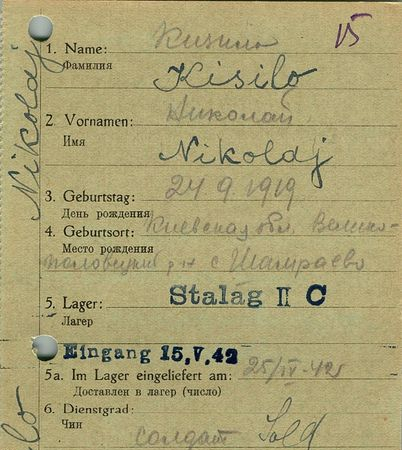 15
Nikoldj
1. Name:
Фамилия
Кизило
Kisilo
2. Vornamen:
Имя
Николай
Nikoldj
3. Geburtstag: 24.9.1919
День рождения
4. Geburtsort: Киевская обл.
Место рождения
с Шамраево
5. Lager: Stalag II C
Лагер
Eingang 15.V.42
5a. Im Lager eingeliefert am: 25/IV-42
Доставлен в лагер (число)
6. Dienstgrad: Sold
Чин солдат
ilo